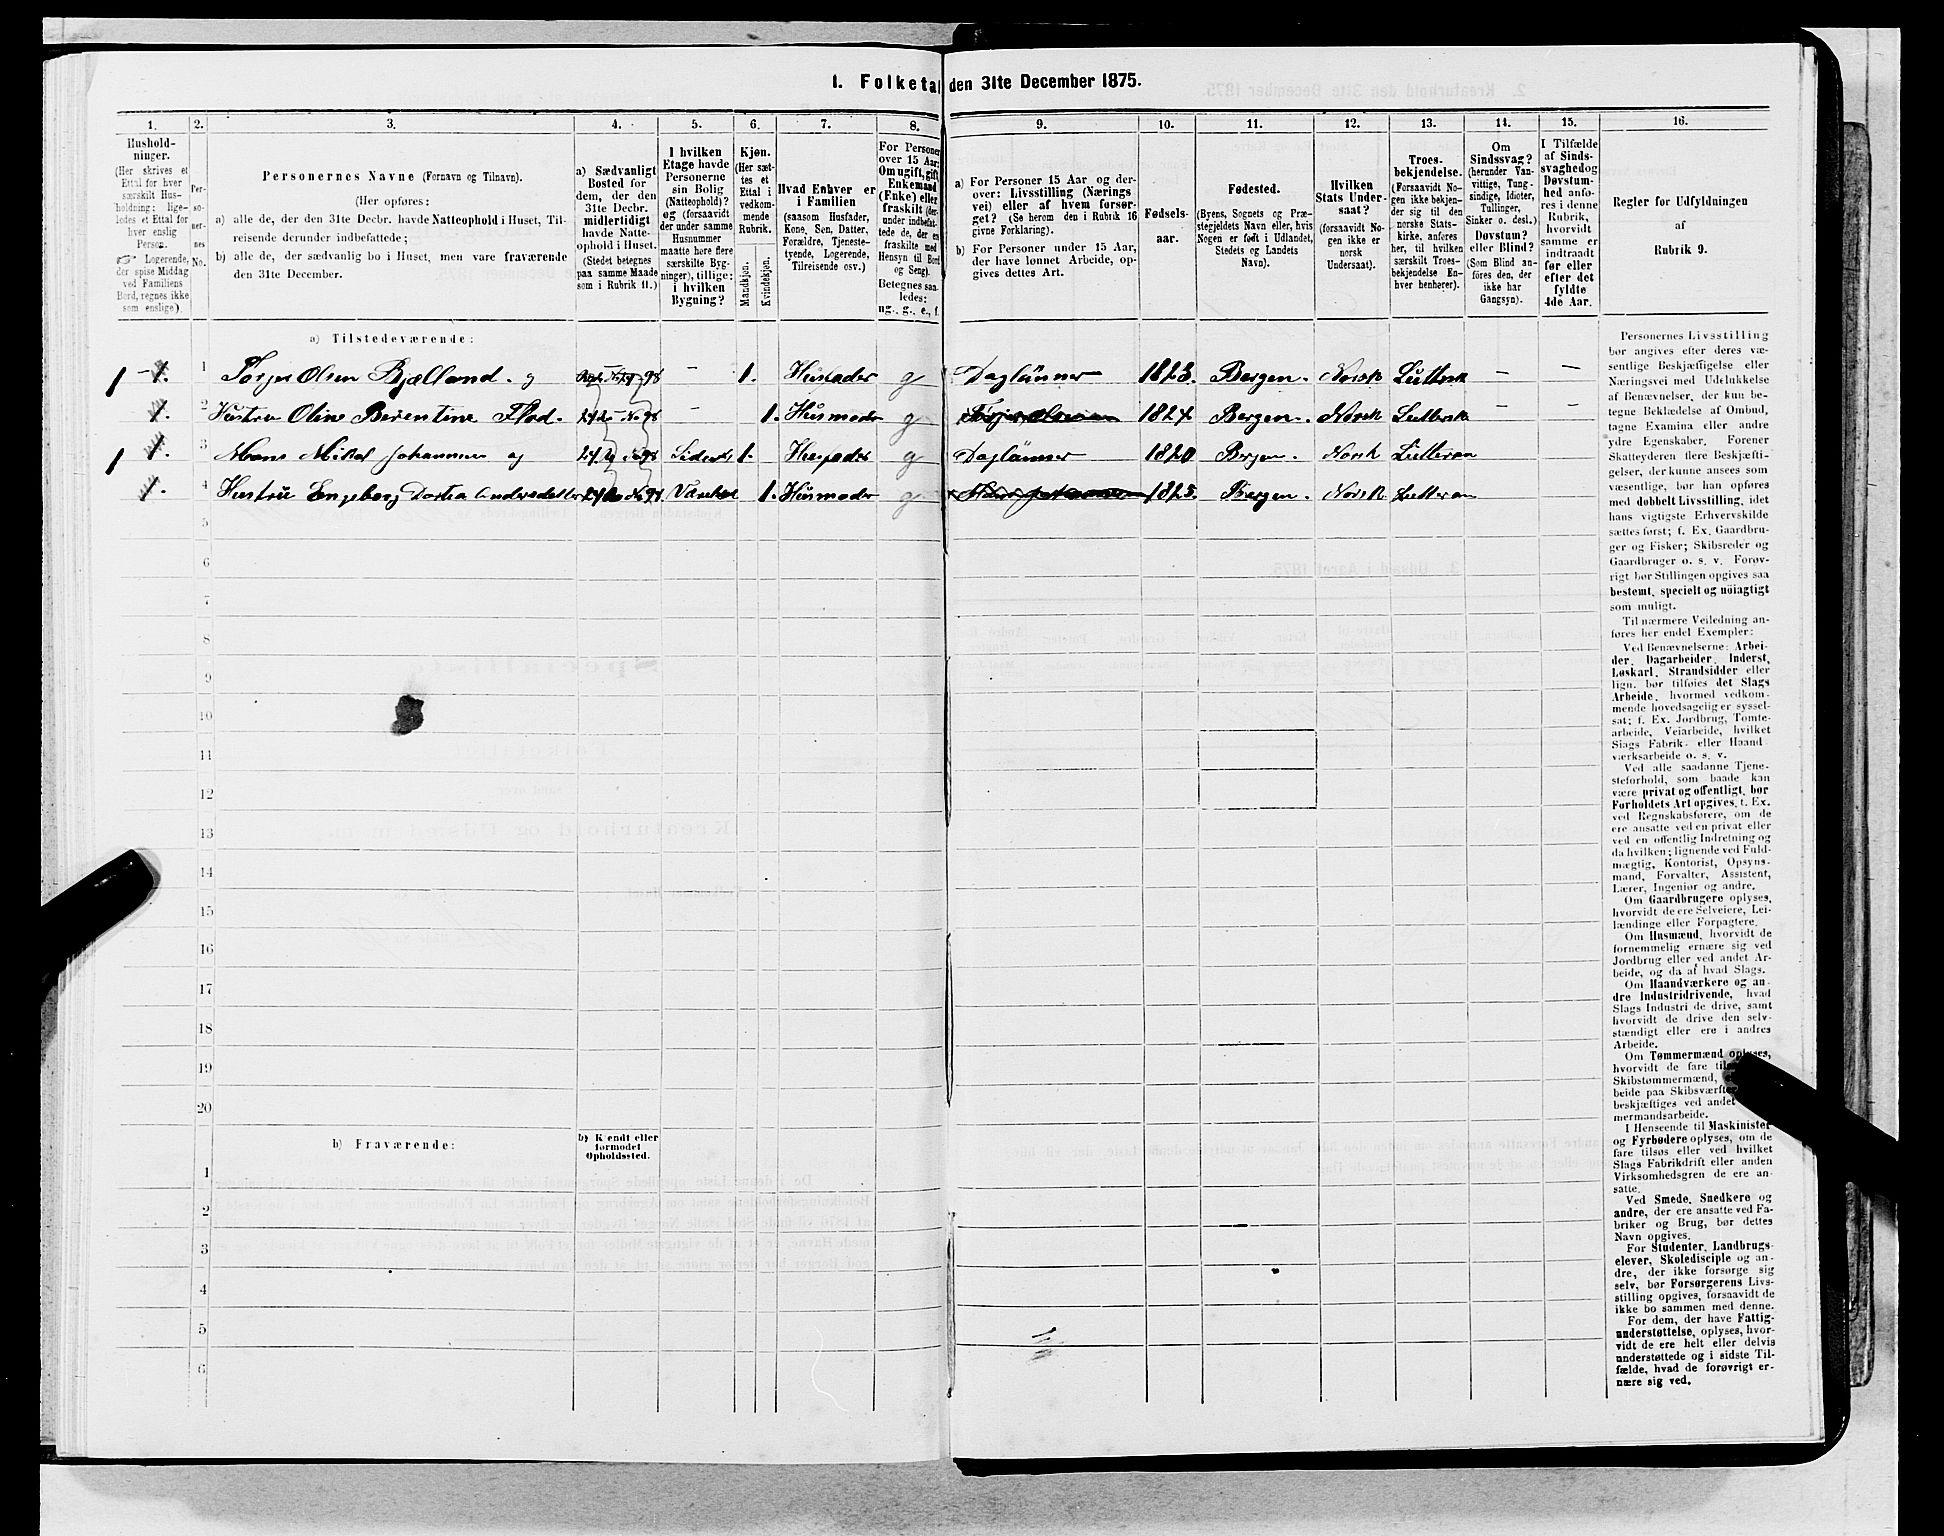 1. Folketal den 31te December 1875.
1.
2.
3.
4.
5.
6.
7.
8.
9.
10.
11.
12.
13.
14.
15.
16.
Hushold-
ninger.
(Her skrives et
Ettal for hver
særskilt Hus-
holdning; lige-
ledes et Ettal for
hver enslig
Person.
☞ Logerende,
der spise Middag
ved Familiens
Bord, regnes ikke
som enslige).
Per-
so-
ner-
nes
No.
Personernes Navne (Fornavn og Tilnavn).
(Her opføres:
a) alle de, der den 31te Decbr. havde Natteophold i Huset, Til-
reisende derunder indbefattede;
b) alle de, der sædvanlig bo i Huset, men vare fraværende
den 31te December.
a) Sædvanligt
Bosted for
dem, der den
31te Decbr.
midlertidigt
havde Natte-
ophold i Huset.
(Stedet betegnes
paa samme Maade
som i Rubrik 11.)
I hvilken
Etage havde
Personerne
sin Bolig
(Natteophold)?
og (forsaavidt
der under samme
Husnummer
maatte høre flere
særskilte Byg-
ninger), tillige:
i hvilken
Bygning?
Kjøn.
(Her sæt-
tes et
Ettal i
vedkom-
mende
Rubrik.
Mandkjøn.
Kvindekjøn.
Hvad Enhver er
i Familien
(saasom Husfader,
Kone, Søn, Datter,
Forældre, Tjeneste-
tyende, Logerende,
Tilreisende osv.)
For Personer
over 15 Aar:
Om ugift, gift,
Enkemand
(Enke) eller
fraskilt (der-
under indbefat-
tede de, der ere
fraskilte med
Hensyn til Bord
og Seng).
Betegnes saa-
ledes:
ug., g., e., f.
a) For Personer 15 Aar og der-
over: Livsstilling (Nærings
vei) eller af hvem forsør-
get? (Se herom den i Rubrik 16
givne Forklaring).
b) For Personer under 15 Aar,
der have lønnet Arbeide, op-
gives dettes Art.
Fødsels-
aar.
Fødested.
(Byens, Sognets og Præ-
stegjeldets Navn eller, hvis
Nogen er født i Udlandet,
Stedets og Landets
Navn).
Hvilken
Stats Under-
saat?
(forsaavidt No-
gen ikke er
norsk
Undersaat).
Troes-
bekjendelse.
(Forsaavidt No-
gen ikke bekjen-
der sig til den
norske Stats-
kirke, anføres
her, til hvilken
særskilt Troes-
bekjendelse En-
hver henhører).
Om
Sindssvag?
(herunder Van-
vittige, Tung-
sindige, Idioter,
Tullinger,
Sinker o. desl.)
Døvstum?
eller Blind?
(Som Blind an-
føres den, der
ikke har
Gangsyn).
I Tilfælde
af Sinds-
svaghed og
Døvstum-
hed anfø-
res i denne
Rubrik,
hvorvidt
samme er
indtraadt
før eller
efter det
fyldte
4de Aar.
Regler for Udfyldningen
af
Rubrik 9.
a) Tilstedeværende:
1 1. 1 Torger Olsen Bjælland. og 1. Husfader g Daglänner 1823. Bergen. Norsk Luttersk
1. 2 Hustru Oline Berentine Flod. 1. Husmoder g 1824 Bergen. Norsk Luttersk
1 1. 3 Mons Mikal Johannsen og 1. Husfader g Daglänner 1820 Bergen. Norsk Lutteran
1. 4 Hustru Engeborg Dortea 1. Husmoder g 1825. Bergen. Norsk Lutteran
5
6
7
8
9
10
11
12
13
14
15
16
17
18
19
20
b) Fraværende:
b) Kjendt eller
formodet
Opholdssted.
1
2
3
4
5
6
Personernes Livsstilling
bør angives efter deres væ-
sentlige Beskjæftigelse eller
Næringsvei med Udelukkelse
af Benævnelser, der kun be-
tegne Beklædelse af Ombud,
tagne Examina eller andre
ydre Egenskaber. Forener
Skatteyderen flere Beskjæfti-
gelser, der kunne ansees som
væsentlige, bør han opføres
med dobbelt Livsstilling, idet
hans vigtigste Erhvervskilde
sættes først; f. Ex. Gaardbru-
ger og Fisker; Skibsreder og
Gaardbruger o. s. v. Forøv-
rigt bør Stillingen opgives saa
bestemt, specielt og nøiagtigt
som muligt.
Til nærmere Veiledning an-
føres her endel Exempler:
Ved Benævnelserne: Arbei-
der, Dagarbeider, Inderst,
Løskarl, Strandsidder eller
lign. bør tilføies det Slags
Arbeide, hvormed vedkom-
mende hovedsagelig er syssel-
sat; f. Ex. Jordbrug, Tomte-
arbeide, Veiarbeide, hvilket
Slags Fabrik- eller Haand-
værksarbeide o. s. v.
Ved alle saadanne Tjene-
steforhold, som baade kan
være privat og offentligt, bør
Forholdets Art opgives, t. Ex.
ved Regnskabsførere, om de
ere ansatte ved en privat eller
ved en offentlig Indretning og
da hvilken; lignende ved Fuld-
mægtig, Kontorist, Opsyns-
mand, Forvalter, Assistent,
Lærer, Ingeniør og andre.
Om Gaardbrugere oplyses,
hvorvidt de ere Selveiere, Lei-
lændinge eller Forpagtere.
Om Husmænd, hvorvidt de
fornemmelig ernære sig ved
Jordbrug eller ved andet Ar-
beide, og da af hvad Slags.
Om Haandværkere og an-
dre Industridrivende, hvad
Slags Industri de drive, samt
hvorvidt de drive den selv-
stændigt eller ere i andres
Arbeide.
Om Tømmermænd oplyses,
hvorvidt de fare
Skibstømmermænd,
beide paa Skibsværft
beskjæftiges ved andet
mermandsarbeide.
I Henseende til Maskinister
og Fyrbødere oplyses, om de
fare tilsøs eller ved hvilket
Slags Fabrikdrift eller anden
Virksomhedsgren de ere an-
satte.
Ved Smede, Snedkere og
andre, der ere ansatte ved Fa-
briker og Brug, bør dettes
Navn opgives.
For Studenter, Landbrugs-
elever, Skoledisciple og an-
dre, der ikke forsørge sig
selv, bør Forsørgerens Livs-
stilling opgives, forsaavidt de
ikke bo sammen med denne.
For dem, der have Fattig-
understøttelse, oplyses, hvor-
vidt de ere helt eller delvis
understøttede og i sidste Til-
fælde, hvad de forøvrigt er-
nære sig ved.